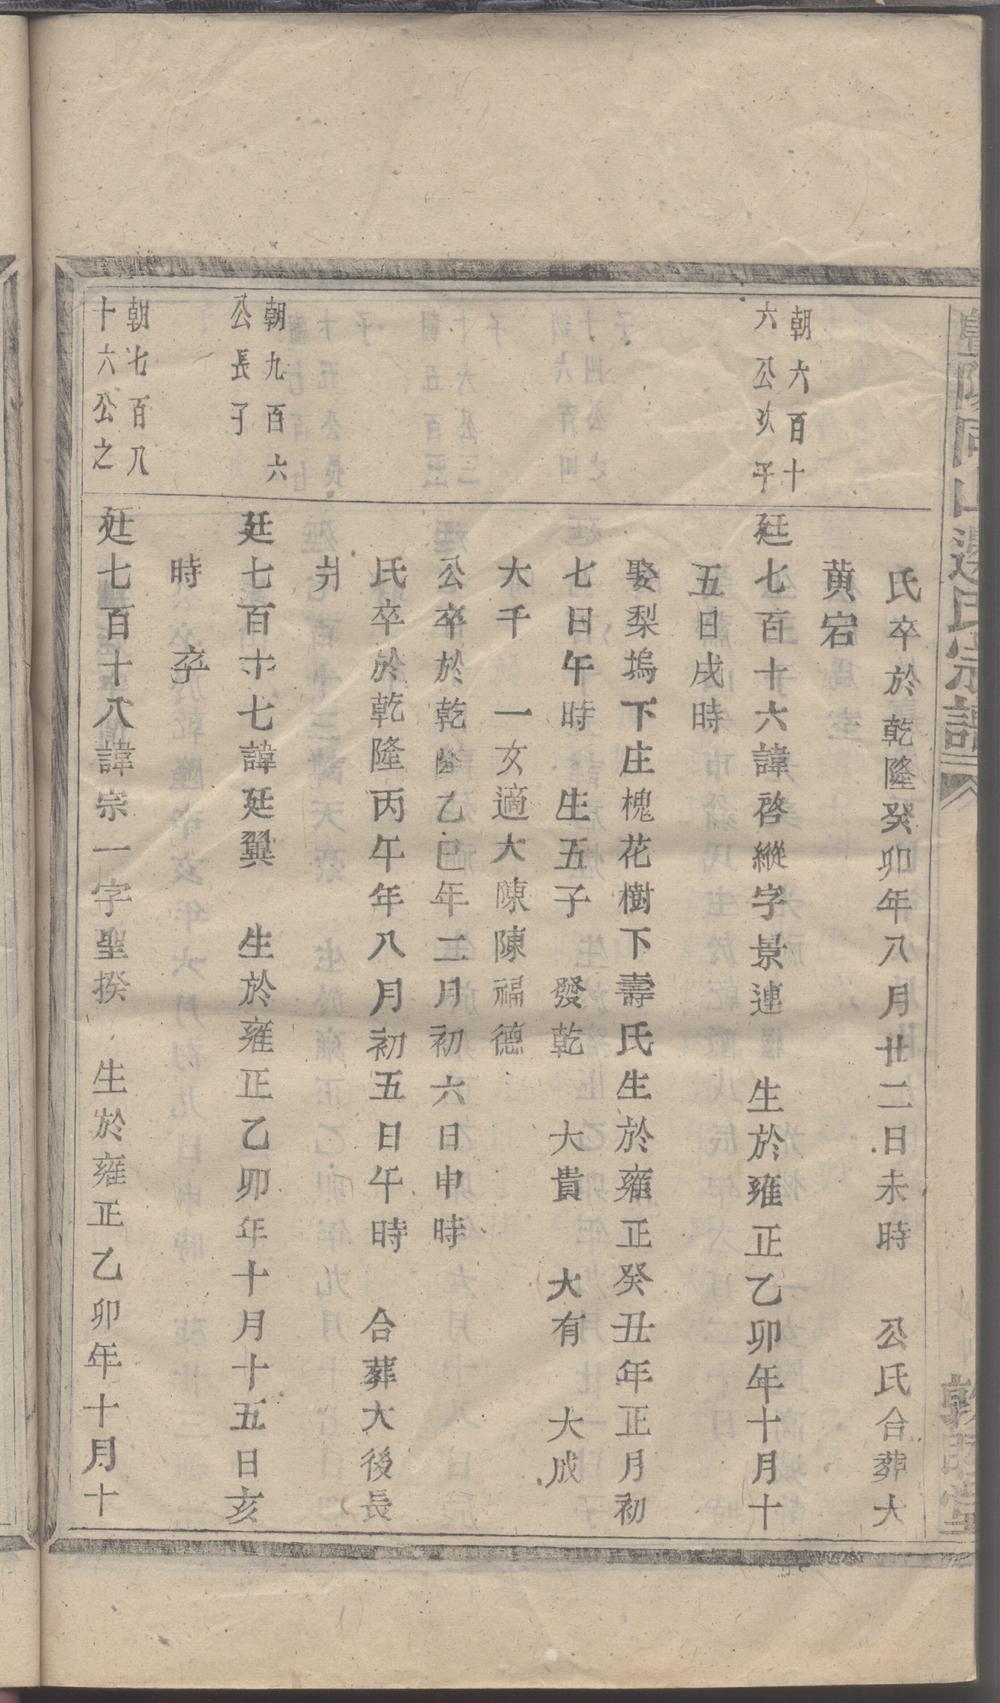 暨陽同山邊氏宗譜
敦睦堂
氏卒於乾隆癸卯年八月廿二日未時 公氏合葬大
黄宕
朝六百十
六公次子
廷七百十六諱啓縱字景連 生於雍正乙卯年十月十
五日戌時
娶梨塢下庄槐花樹下壽氏生於雍正癸丑年正月初
七日午時 生五子 發乾 大貴 大有 大成
大千 一女適大陳陳福德
公卒於乾隆乙巳年二月初六日申時
氏卒於乾隆丙午年八月初五日午時 合葬大後長
爿
朝九百六
公長子
廷七百十七諱廷翼 生於雍正乙卯年十月十五日亥
時 卒
朝七百八
十六公之
廷七百十八諱宗一字聖揆 生於雍正乙卯年十月十